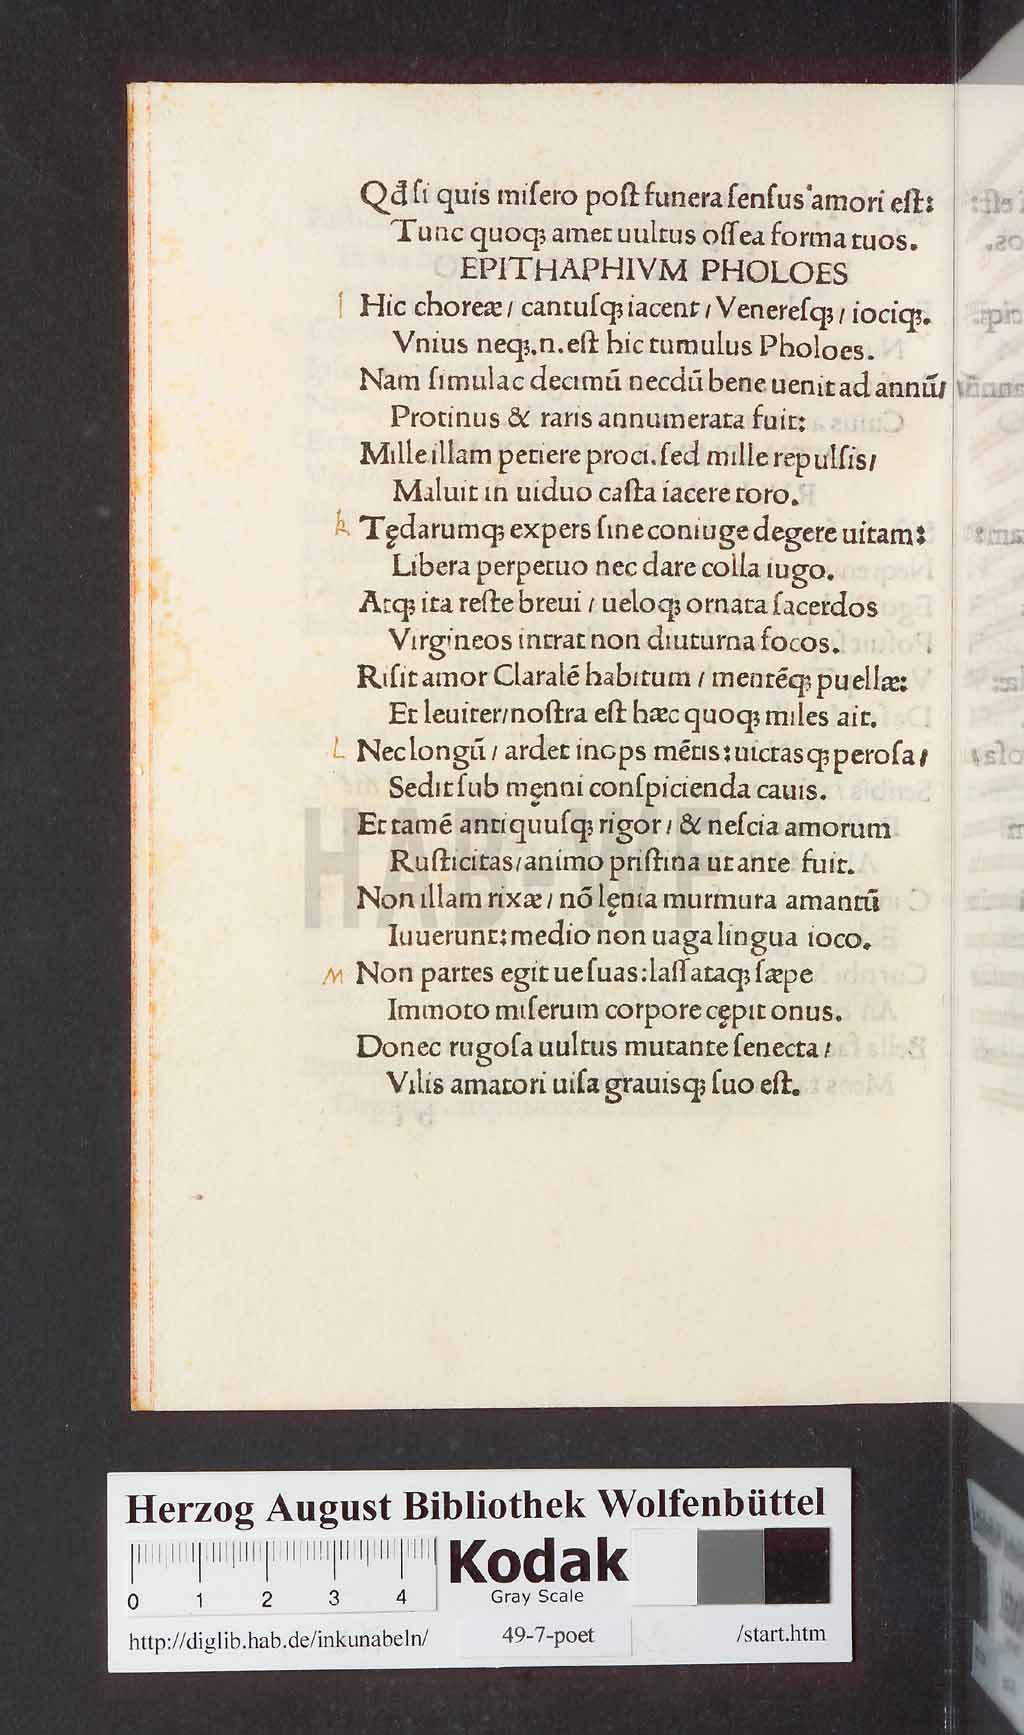 Qđ ſi quis miſero poſt funera ſenſus amori eſt:
Tunc quoq; amet uultus oſſea forma tuos.
EPITHAPHIVM PHOLOES
Hic choreæ / cantuſq; iacent / Venereſq; / iociq;.
Vnius neq;.n.eſt hic tumulus Pholoes.
Nam ſimulac decimū necdū bene uenit ad annū/
Protinus & raris annumerata fuit:
Mille illam petiere proci. ſed mille repulſis/
Maluit in uiduo caſta iacere toro.
k Tędarumq; expers ſine coniuge degere uitam:
Libera perpetuo nec dare colla iugo.
Atq; ita reſte breui / ueloq; ornata ſacerdos
Virgineos intrat non diuturna focos.
Riſit amor Claralē habitum / mentēq; puellæ:
Et leuiter/noſtra eſt hæc quoq; miles ait.
L Nec longū / ardet inops mētis: uictasq; peroſa/
Sedit ſub męnni conſpicienda cauis.
Et tamē antiquuſq; rigor / & neſcia amorum
Ruſticitas/animo priſtina ut ante fuit.
Non illam rixæ / nō lęnia murmura amantū
Iuuerunt: medio non uaga lingua ioco.
M Non partes egit ue ſuas: laſſataq; ſæpe
Immoto miſerum corpore cępit onus.
Donec rugoſa uultus mutante ſenecta /
Vilis amatori uiſa grauisq; ſuo eſt.
HAB-WF
Herzog August Bibliothek Wolfenbüttel
0 1 2 3 4
Kodak
Gray Scale
http://diglib.hab.de/inkunabeln/ 49-7-poet /start.htm